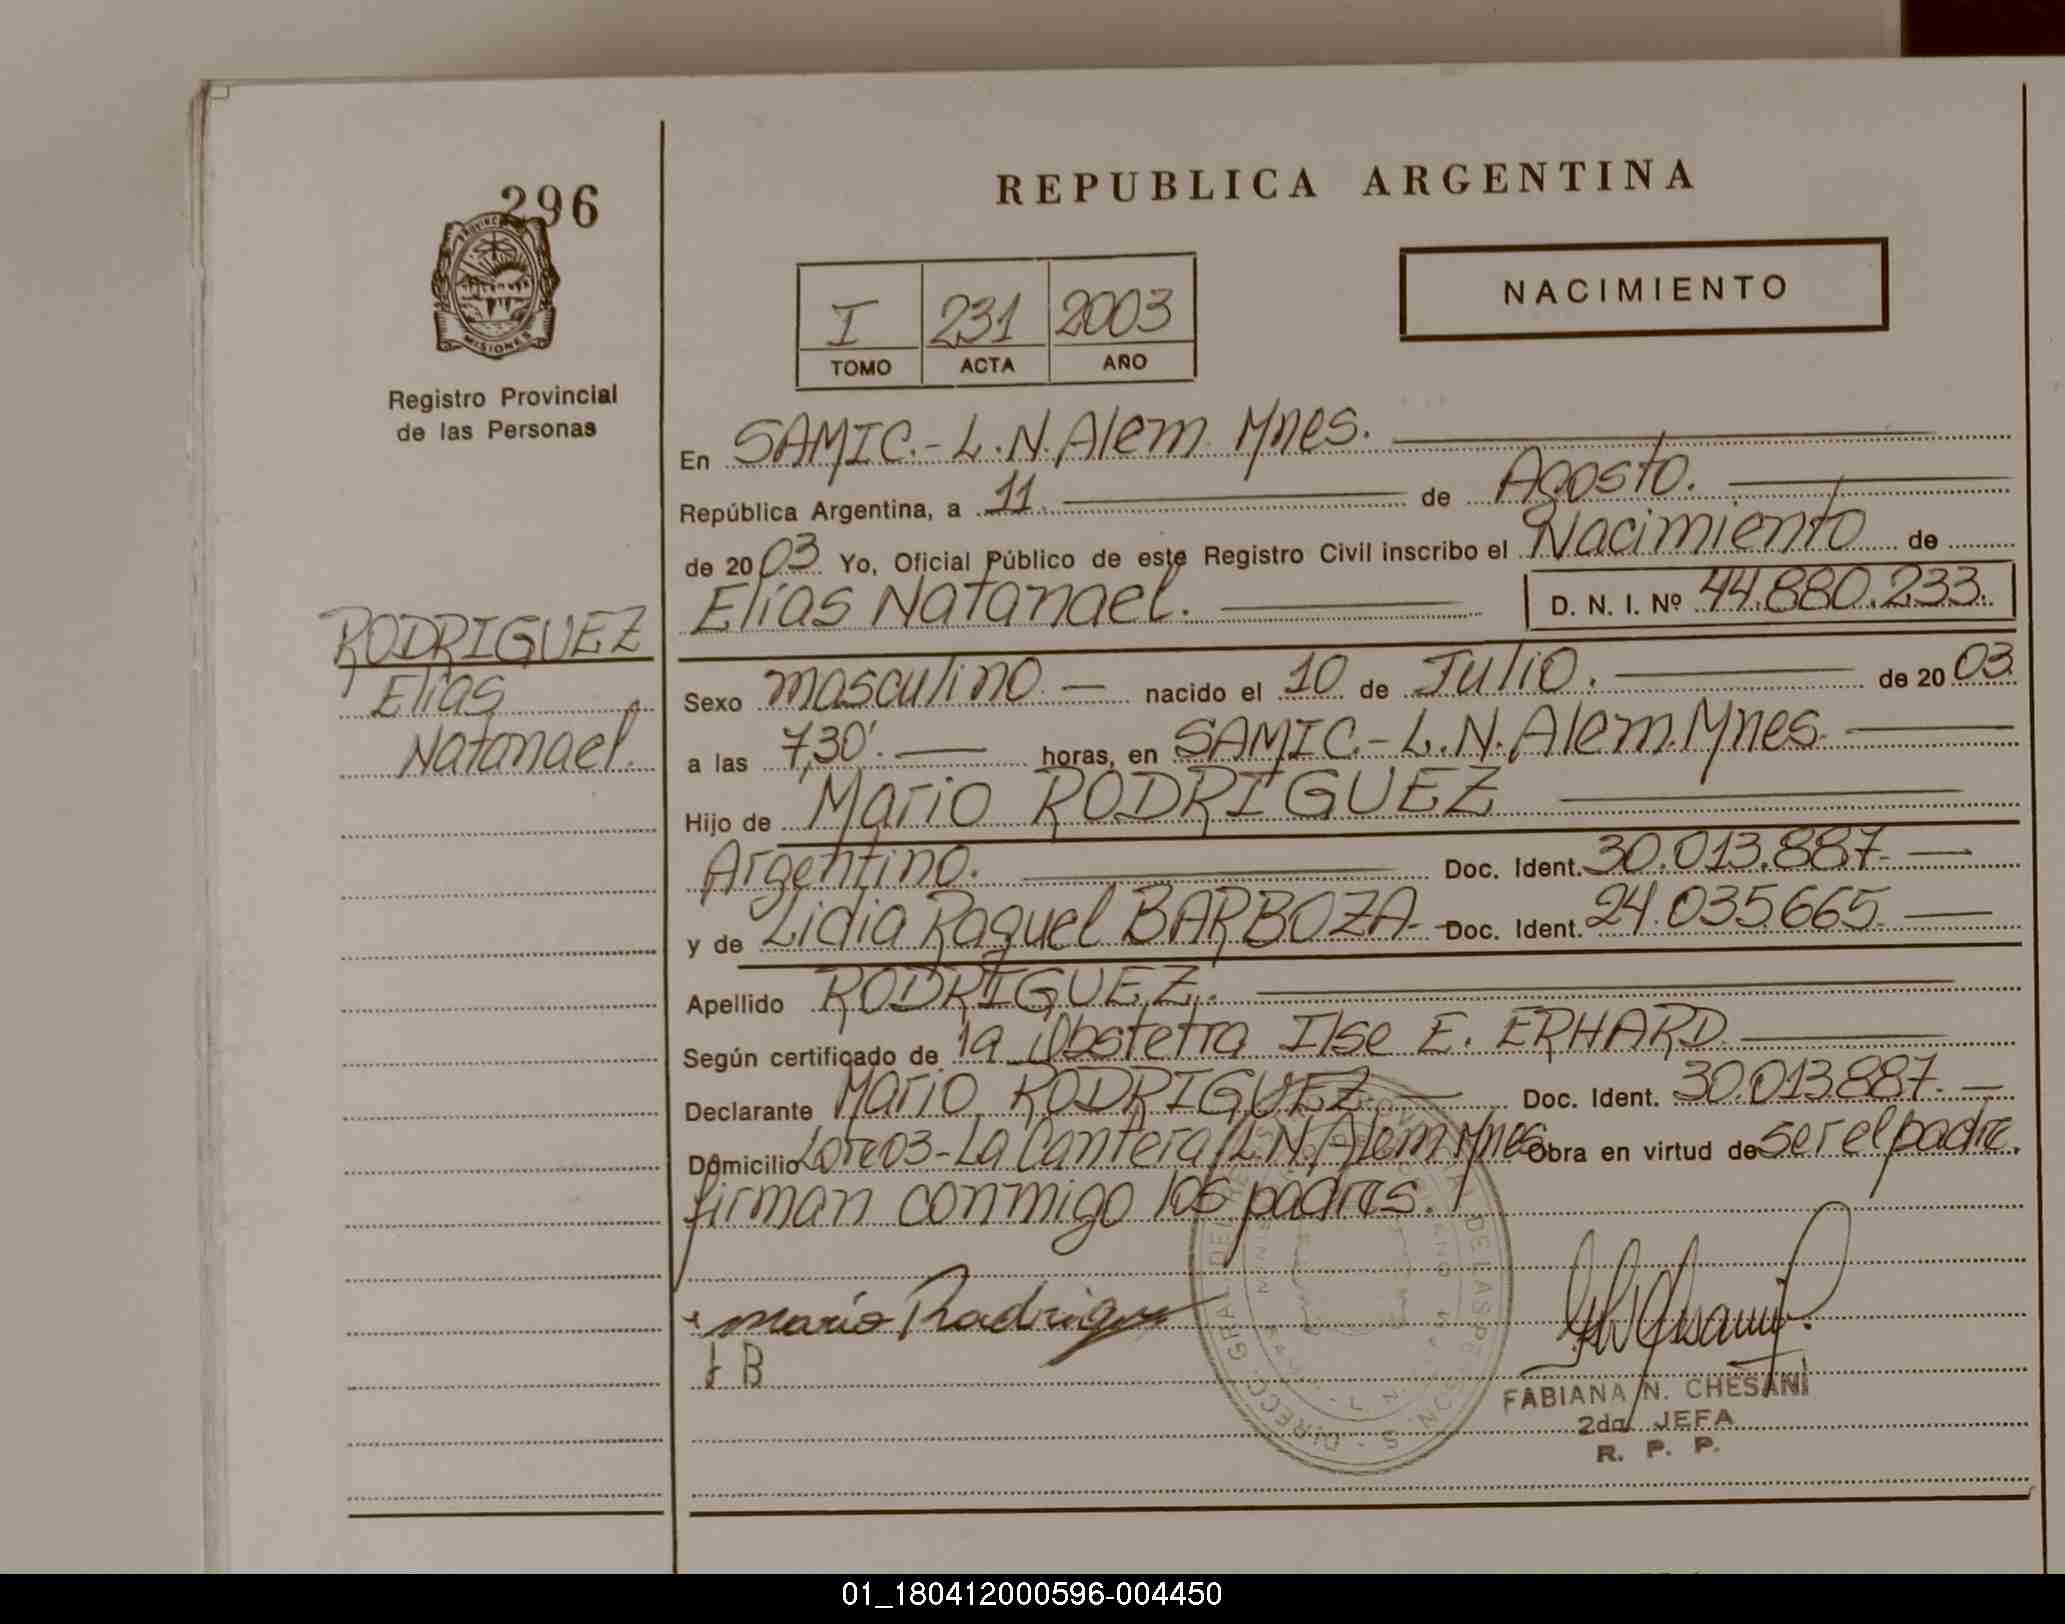 296
PROVINCIA
MISIONES
Registro Provincial
de las Personas
RODRIGUEZ
Elías
Natanael.
REPUBLICA ARGENTINA
NACIMIENTO
I 231 2003
TOMO ACTA AÑO
En SAMIC.- L.N.Alem Mnes.
República Argentina, a 11. de Agosto.
de 2003 Yo, Oficial Público de este Registro Civil inscribo el Nacimiento de
Elías Natanael. D. N. I. Nº 44.880.233.
Sexo masculino nacido el 10 de Julio. de 2003
a las 7,30'. horas, en SAMIC.- L.N. Alem. Mnes.
Hijo de Mario RODRIGUEZ
Argentino. Doc. Ident. 30.013.887.
y de Lidia Raquel BARBOZA- Doc. Ident. 24.035665.
Apellido RODRIGUEZ.
Según certificado de la Obstetra Ilse E. ERHARD
Declarante Mario RODRIGUEZ Doc. Ident. 30.013887.
Domicilio Lote 03-La Cantera/L.N.Alem Mnes Obra en virtud de ser el padre.
firman conmigo los padres.
Mario Rodriguez
B
FABIANA N. CHESANI
2da. JEFA
R. P. P.
01_180412000596-004450